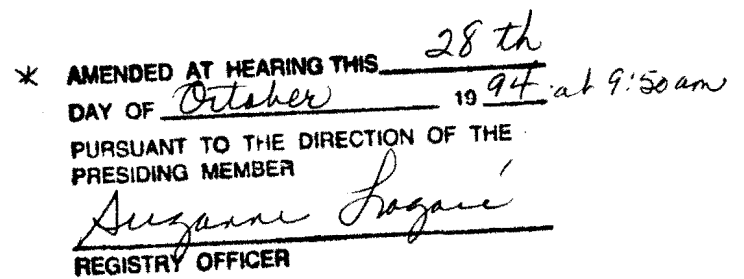 * AMENDED AT HEARING THIS 28 th
DAY OF October 1994 at 9:50 am
PURSUANT TO THE DIRECTION OF THE
PRESIDING MEMBER
Suzanne
REGISTRY OFFICER